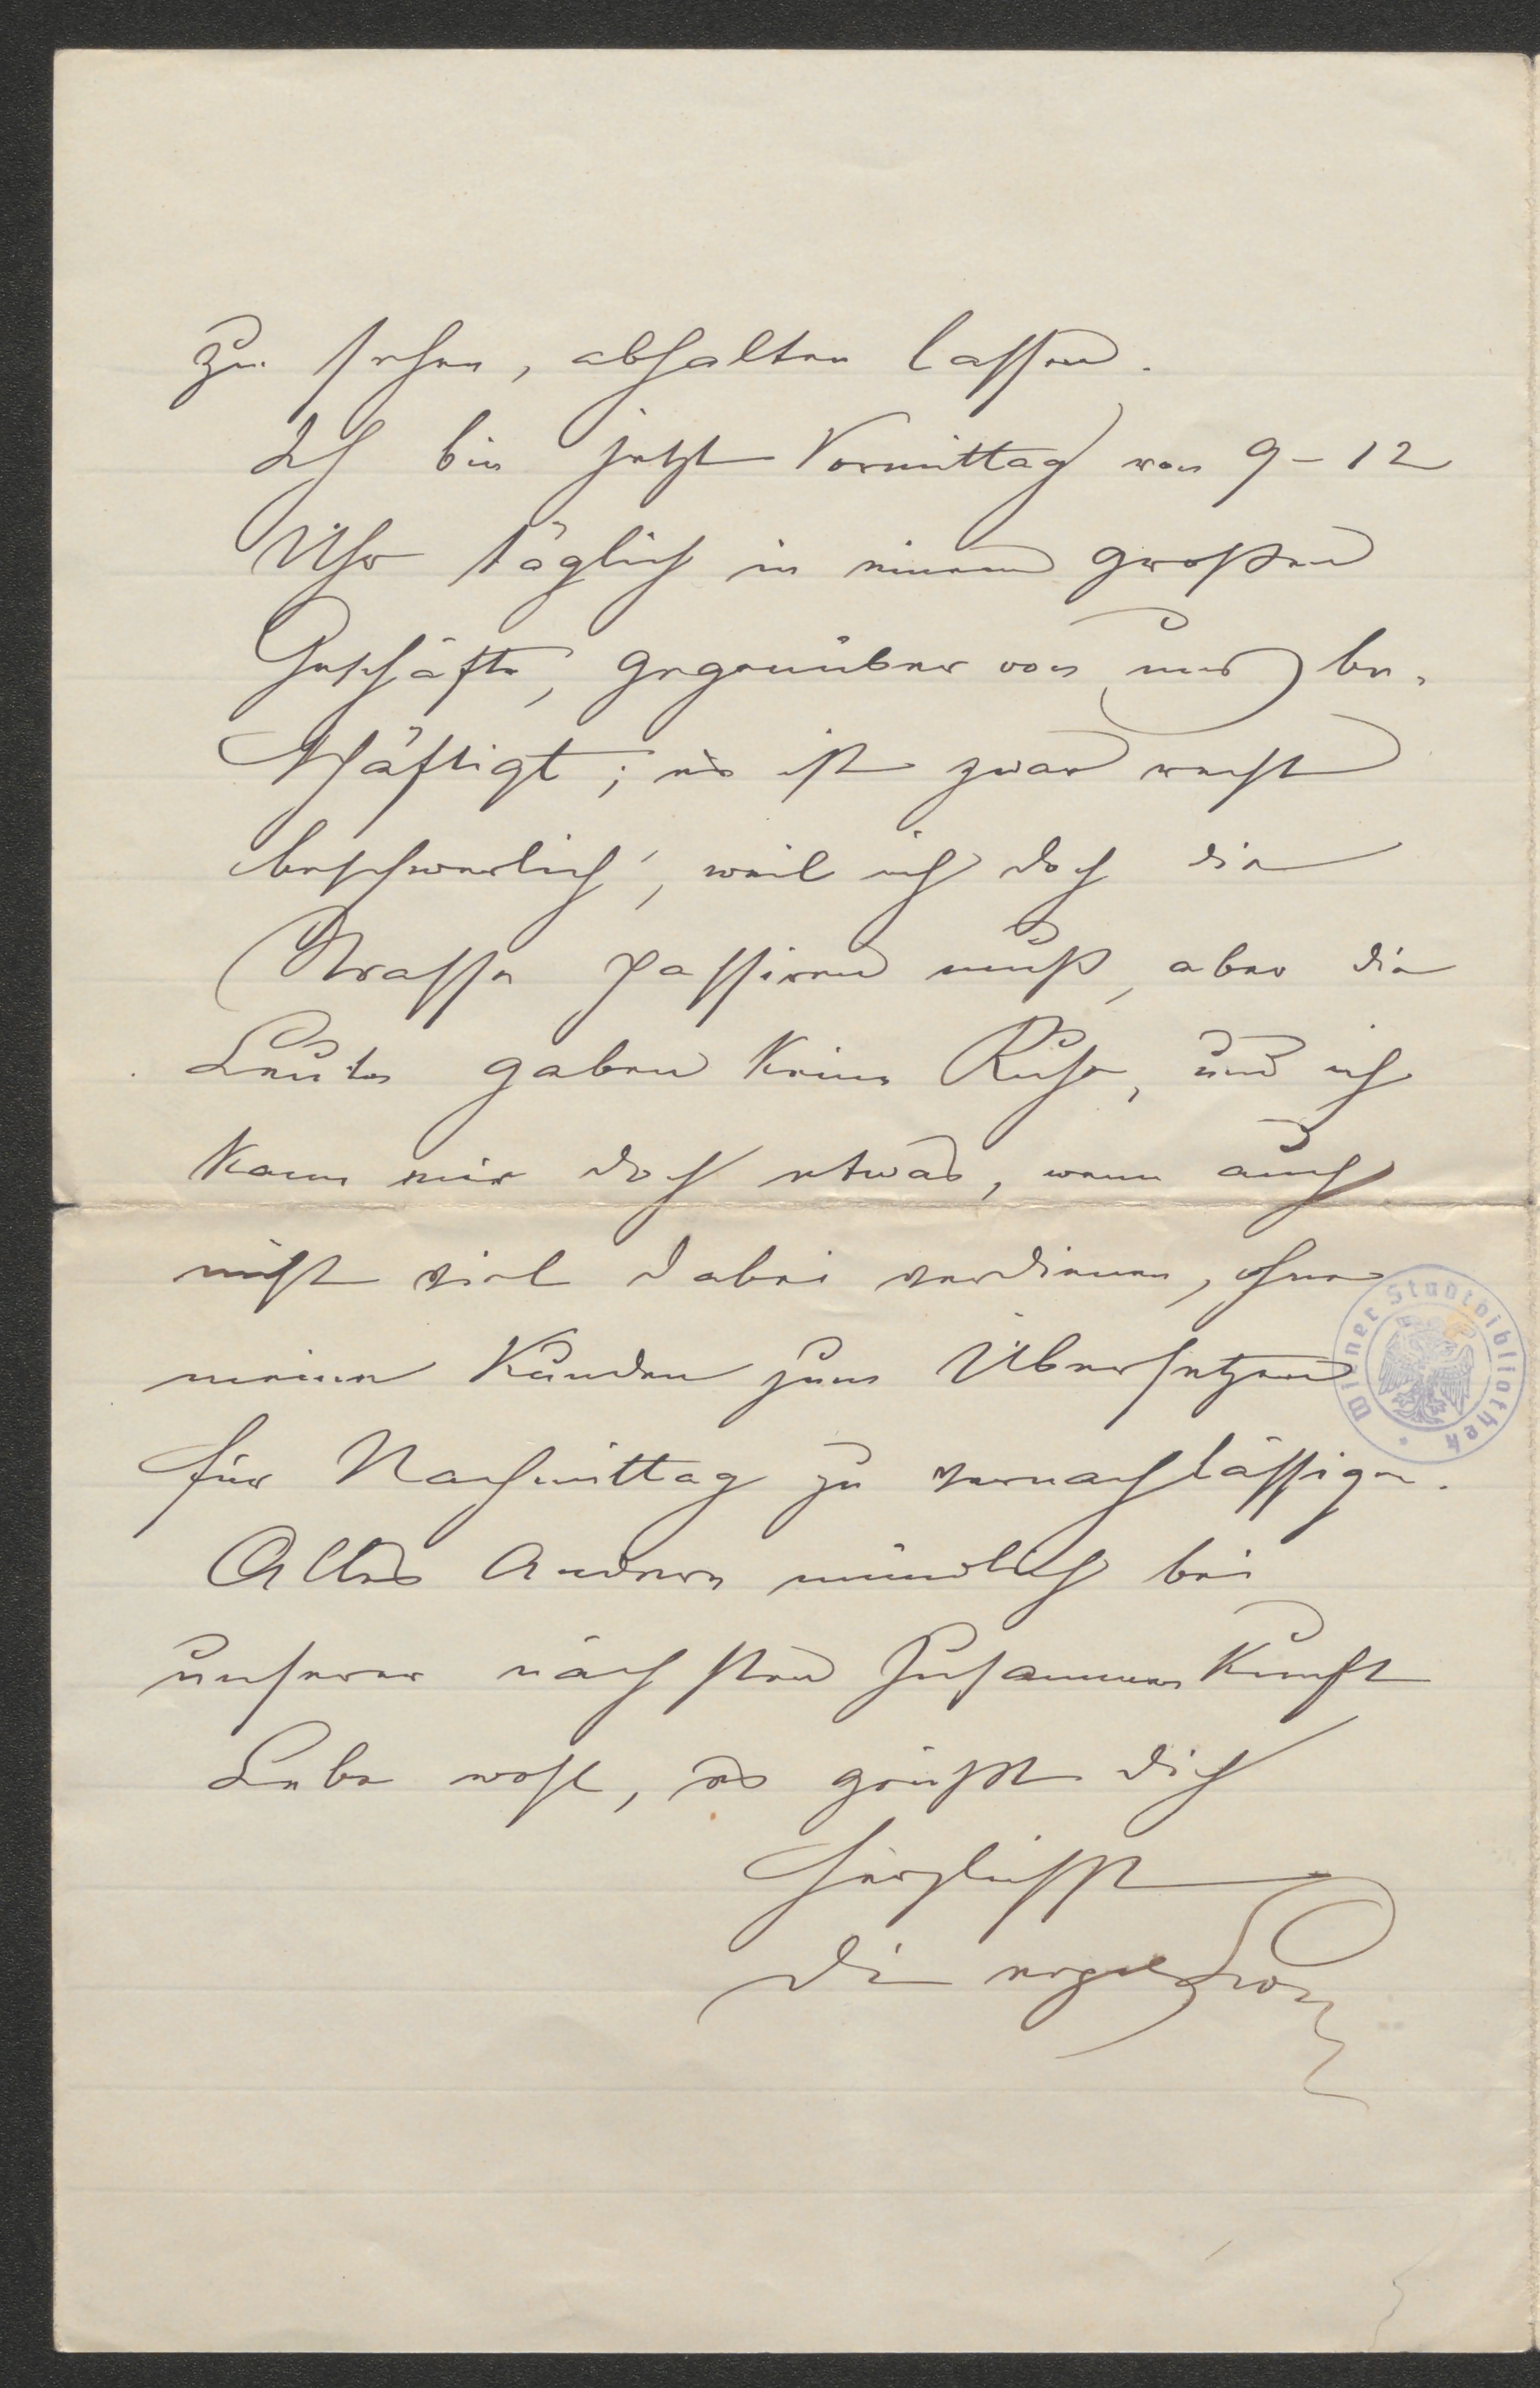 zu sehen, abhalten lassen.
Ich bin jetzt Vormittag von 9-12
Uhr täglich in einem großen
Geschäfte, gegenüber von uns be-
schäftigt; es ist zwar recht
beschwerlich, weil ich doch die
Strasse passiren muß, aber die
Leute gaben keine Ruhe, und ich
kann mir doch etwas, wenn auch
nicht viel dabei verdienen, ohne
meine Kunden zum Übersetzen
für Nachmittag zu vernachlässigen.
Alles Andere mündlich bei
unserer nächsten Zusammenkunft
Lebe wohl, es grüßt dich
herzlichst
Wiener Stadtbibliothek